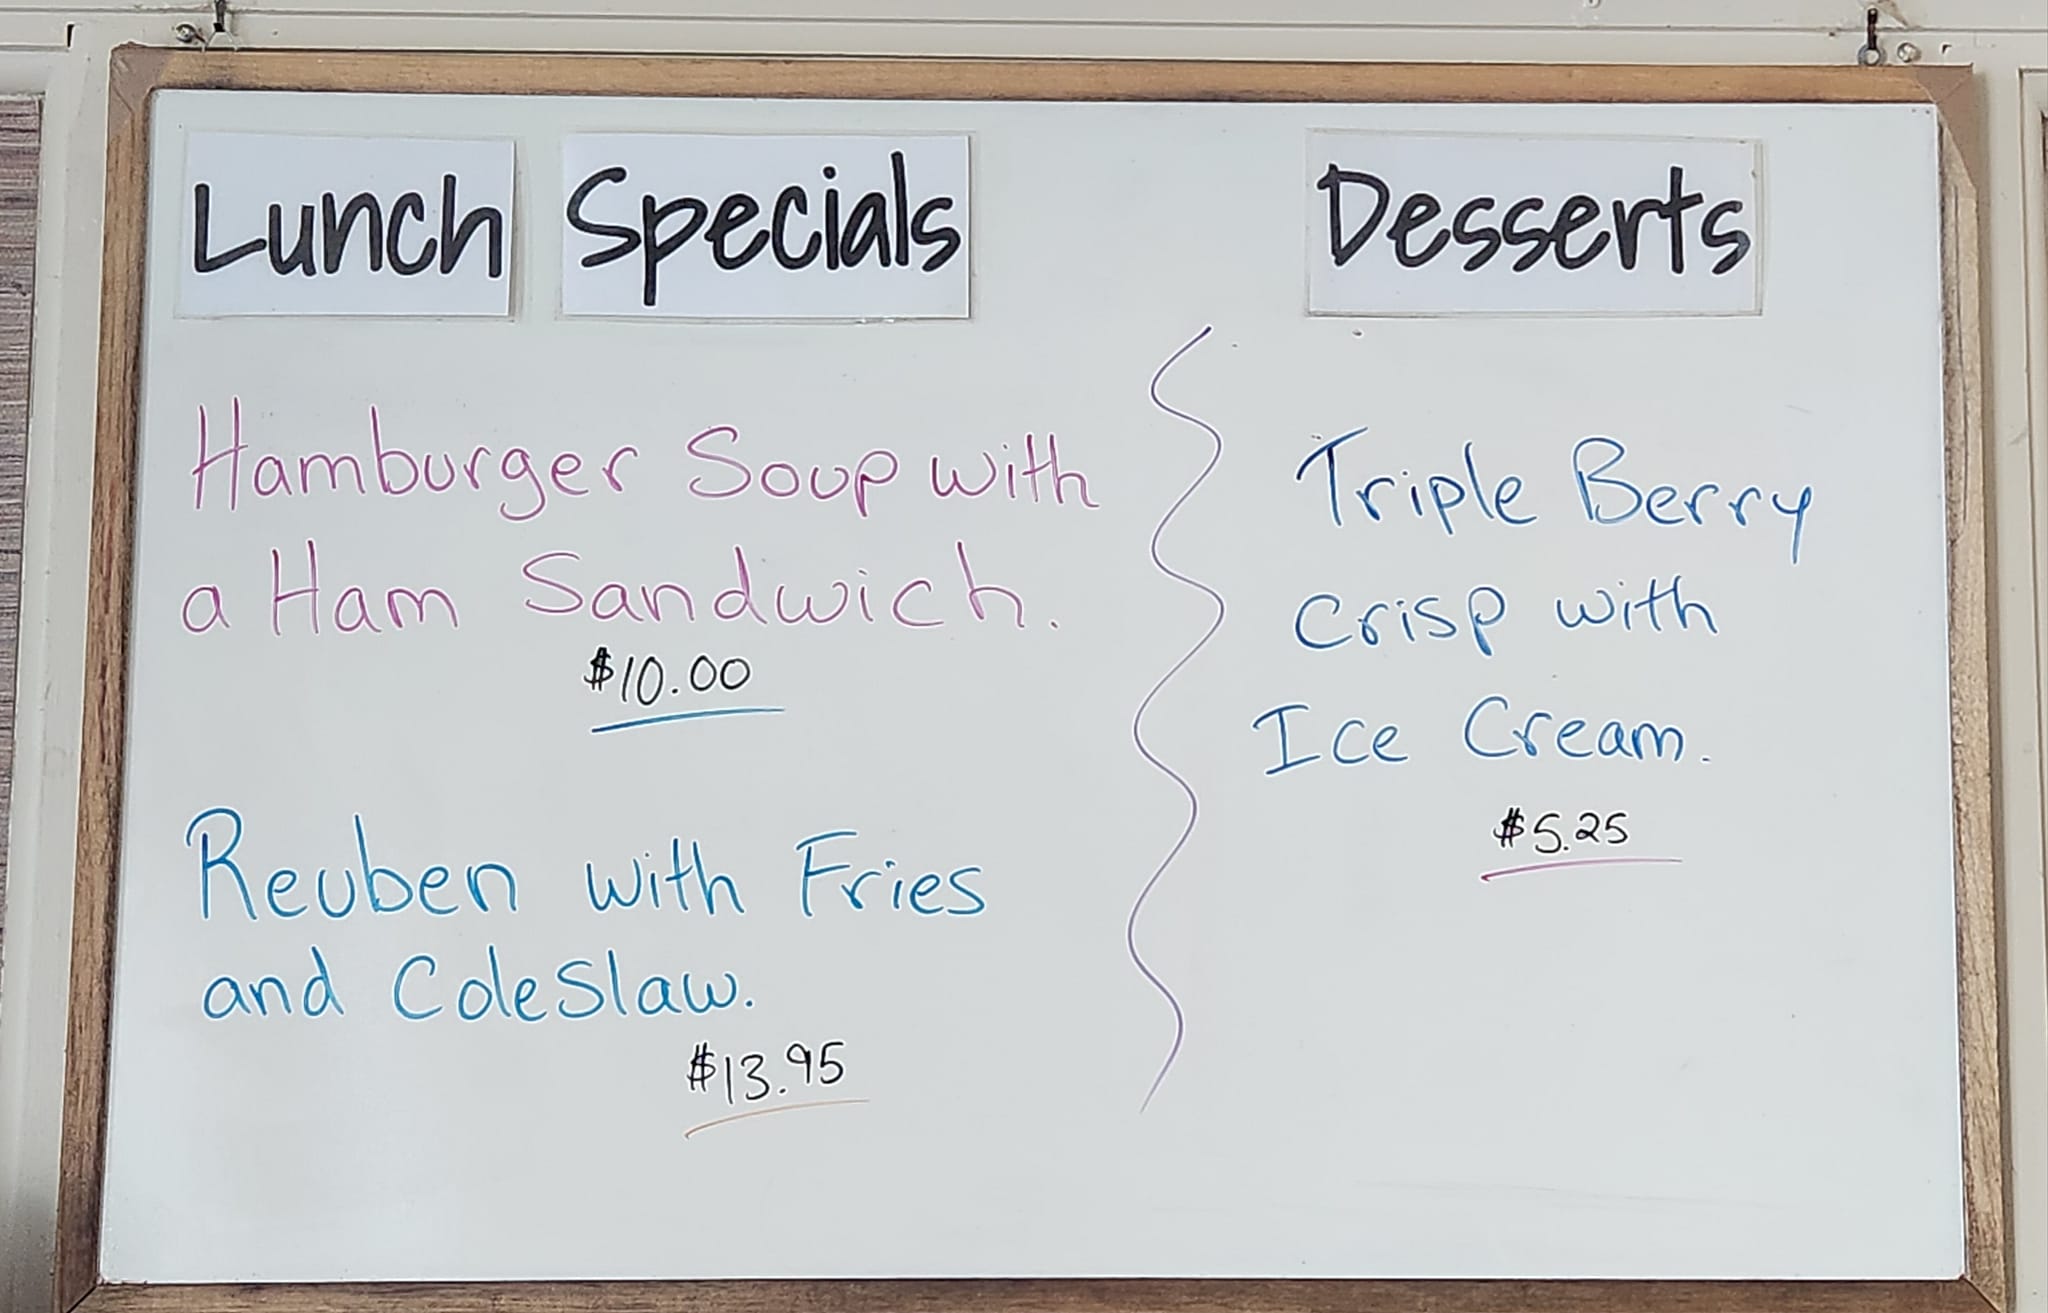 Lunch Specials
Hamburger Soup with
a Ham Sandwich.
$10.00
Reuben with Fries
and ColeSlaw.
$13.95
Desserts
Triple Berry
Crisp with
Ice Cream.
$5.25